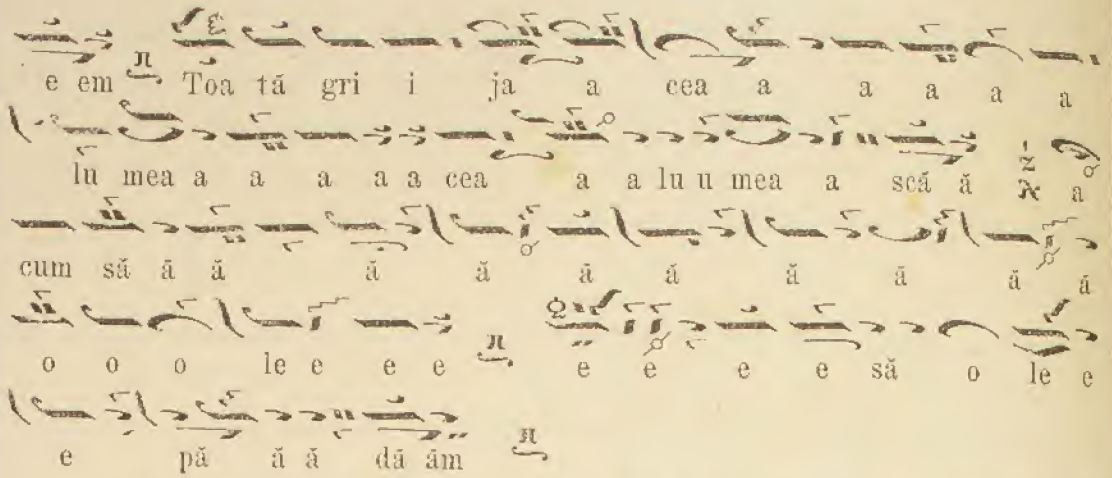 e em Toa tă gri i ja a cea a a a a a
lu mea a a a a a cea a a lu u mea a scă ă a
cum să ă ă ă ă ă ă ă ă ă ă
o o o le e e e e e e e să o le e
e pă ă ă dă ăm